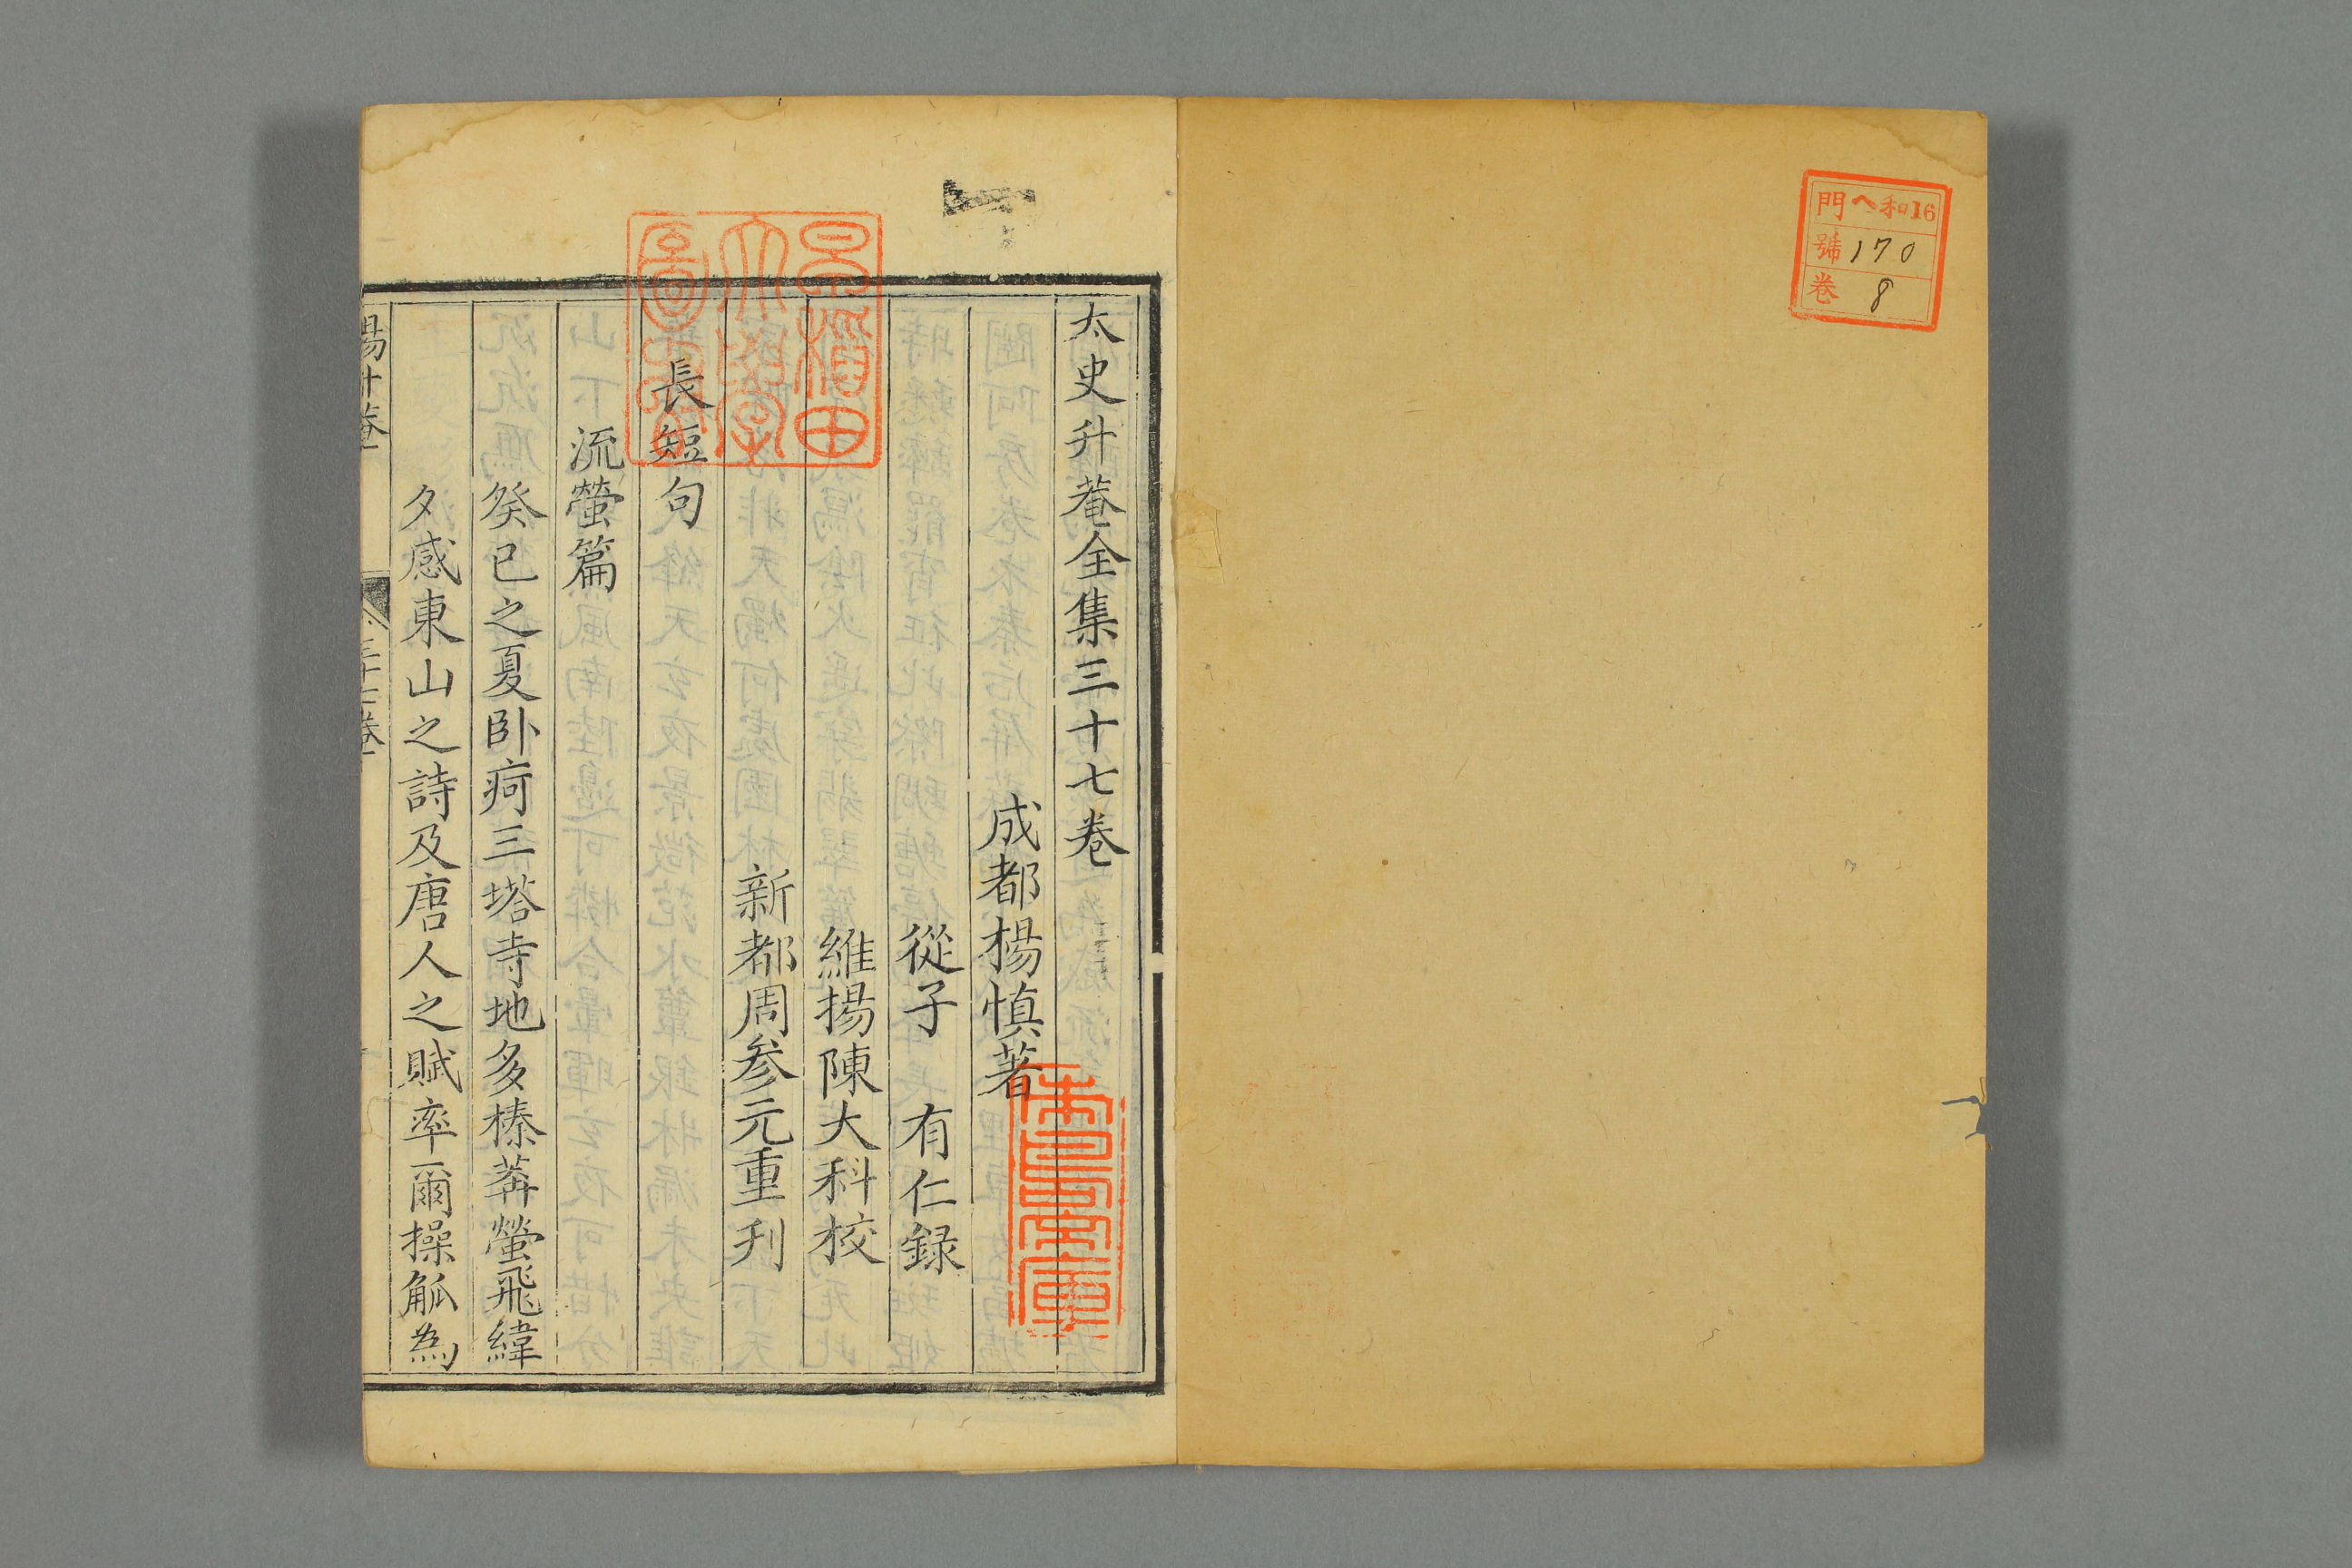 門 ヘ和16
號 170
卷 8
太史升菴全集三十七卷
成都楊慎著
從子 有仁録
維揚陳大科校
新都周参元重刋
長短句
流螢篇
癸巳之夏卧疴三塔寺地多榛莽螢飛緯
夕感東山之詩及唐人之賦率爾操觚為
楊升菴
三十七卷
早稲田大學圖書